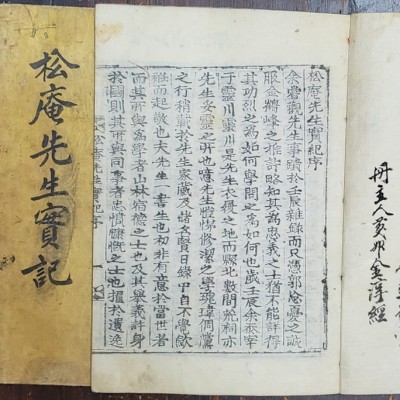 松庵先生實記
松庵先生實紀序
余嘗觀先生事蹟於壬辰雜錄而只憑郭忘憂之誠
服金鶴峰之推許略知其為忠義之士猶不能詳得
其功烈之為如何學問之為如何也歲壬辰余來宰
于靈川靈川是先生衣履之地而歸北數間荒祠亦
先生妥靈之所也噫先生戰悌修潔之學瑰瑋倜儻
之行稍載於先生家藏及諸名賢日錄甲自不覺欽
雖而起敬也夫先生一書生也初非有意於當世者
而其所與為學者山林宿德之士也及其奮義許身
於國則其所與同事者忠憤慷慨之士也揠於遺逸
松庵先生實紀序
一
冊主人亥卯金澤經